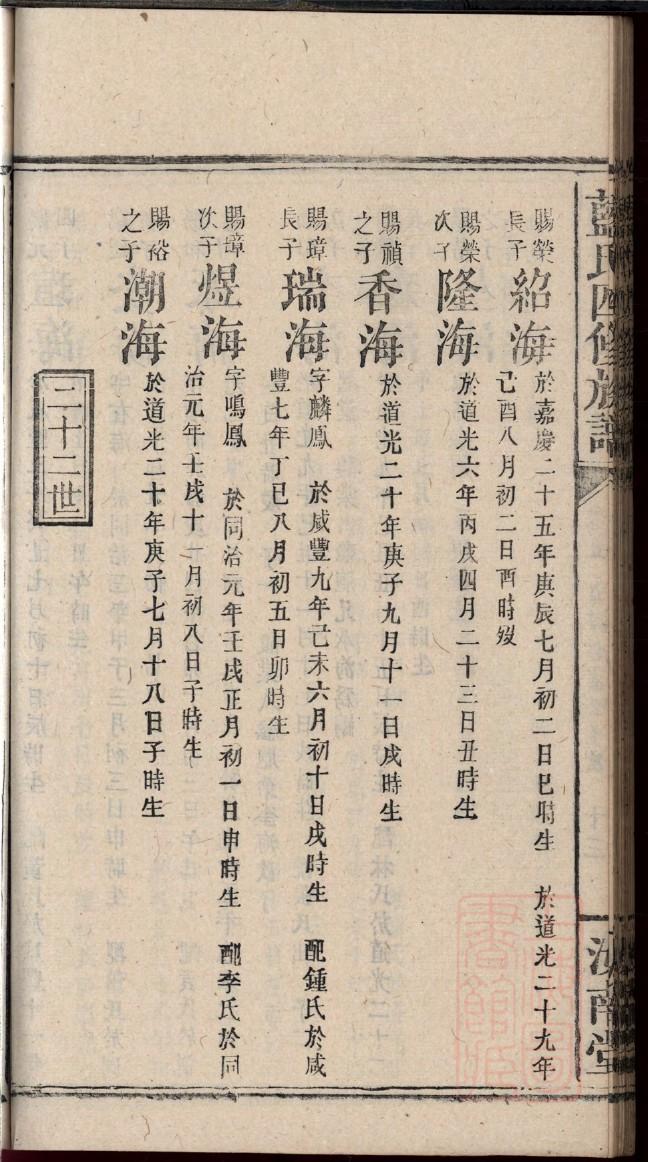 藍氏四修族譜
汝南堂
賜榮
長子
紹海
於嘉慶二十五年庚辰七月初二日巳時生 於道光二十九年
己酉八月初二日酉時歿
賜榮
次子
隆海
於道光六年丙戌四月二十三日丑時生
賜禎
之子
香海
於道光二十年庚子九月十一日戌時生
賜璋
長子
瑞海
字麟鳳 於咸豐九年己未六月初十日戌時生 配鍾氏於咸
豐七年丁巳八月初五日卯時生
賜璋
次子
煜海
字鳴鳳 於同治元年壬戌正月初一日申時生 配李氏於同
治元年壬戌十二月初八日子時生
賜裕
之子
潮海
於道光二十年庚子七月十八日子時生
二十二世